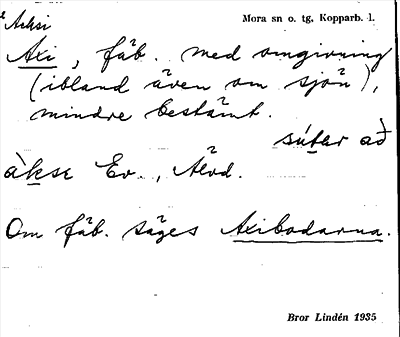 Axsi
Mora sn o. tg, Kopparb. l.
Axi, fäb. med omgivning
(ibland även om sjön),
mindre bestämt.
sútar að
àkse Ev., Älvd.
Om fäb. säges Axibodarna.
Bror Lindén 1935